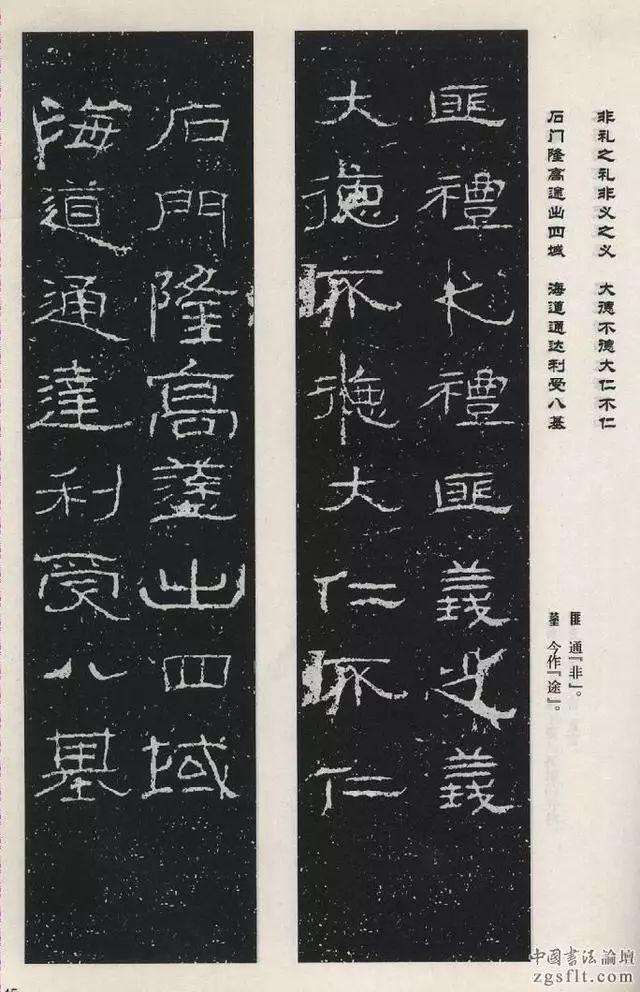 非礼之礼非义之义 大德不德大仁不仁
石门隆高途出四域 海道通达利受八基
匪 通『非』。
今作『途』。
匪禮之禮匪義之義
大德不德大仁不仁
石門隆高出四域
海道通達利受八基
中国书法論壇
zgsflt.com